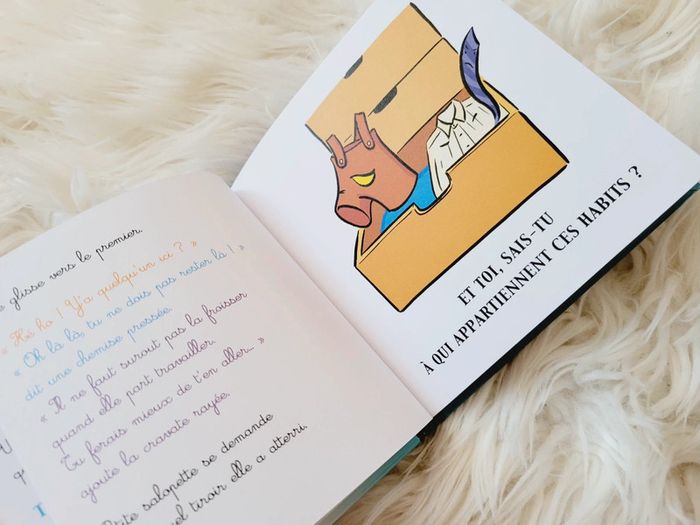 glisse vers le premier.
« Hé ho ! Y'a quelqu'un ici ? »
« Oh là là, tu ne dois pas rester là ! »
dit une chemise pressée.
« Il ne faut surtout pas la froisser
quand elle part travailler.
Tu ferais mieux de t'en aller... »
ajoute la cravate rayée.
salopette se demande
tiroir elle a atterri.
ET TOI, SAIS-TU
À QUI APPARTIENNENT CES HABITS ?